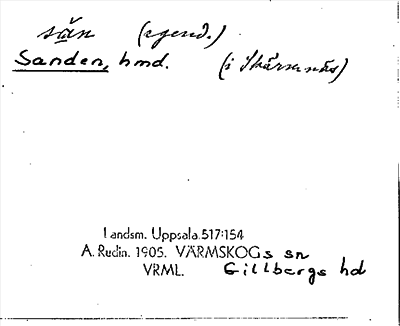 sän (egend.)
Sanden, hmd. (i Skårsnäs)
Landsm. Uppsala.517:154
A. Rudin. 1905. VÄRMSKOGs sn
VRML. Gillbergs hd